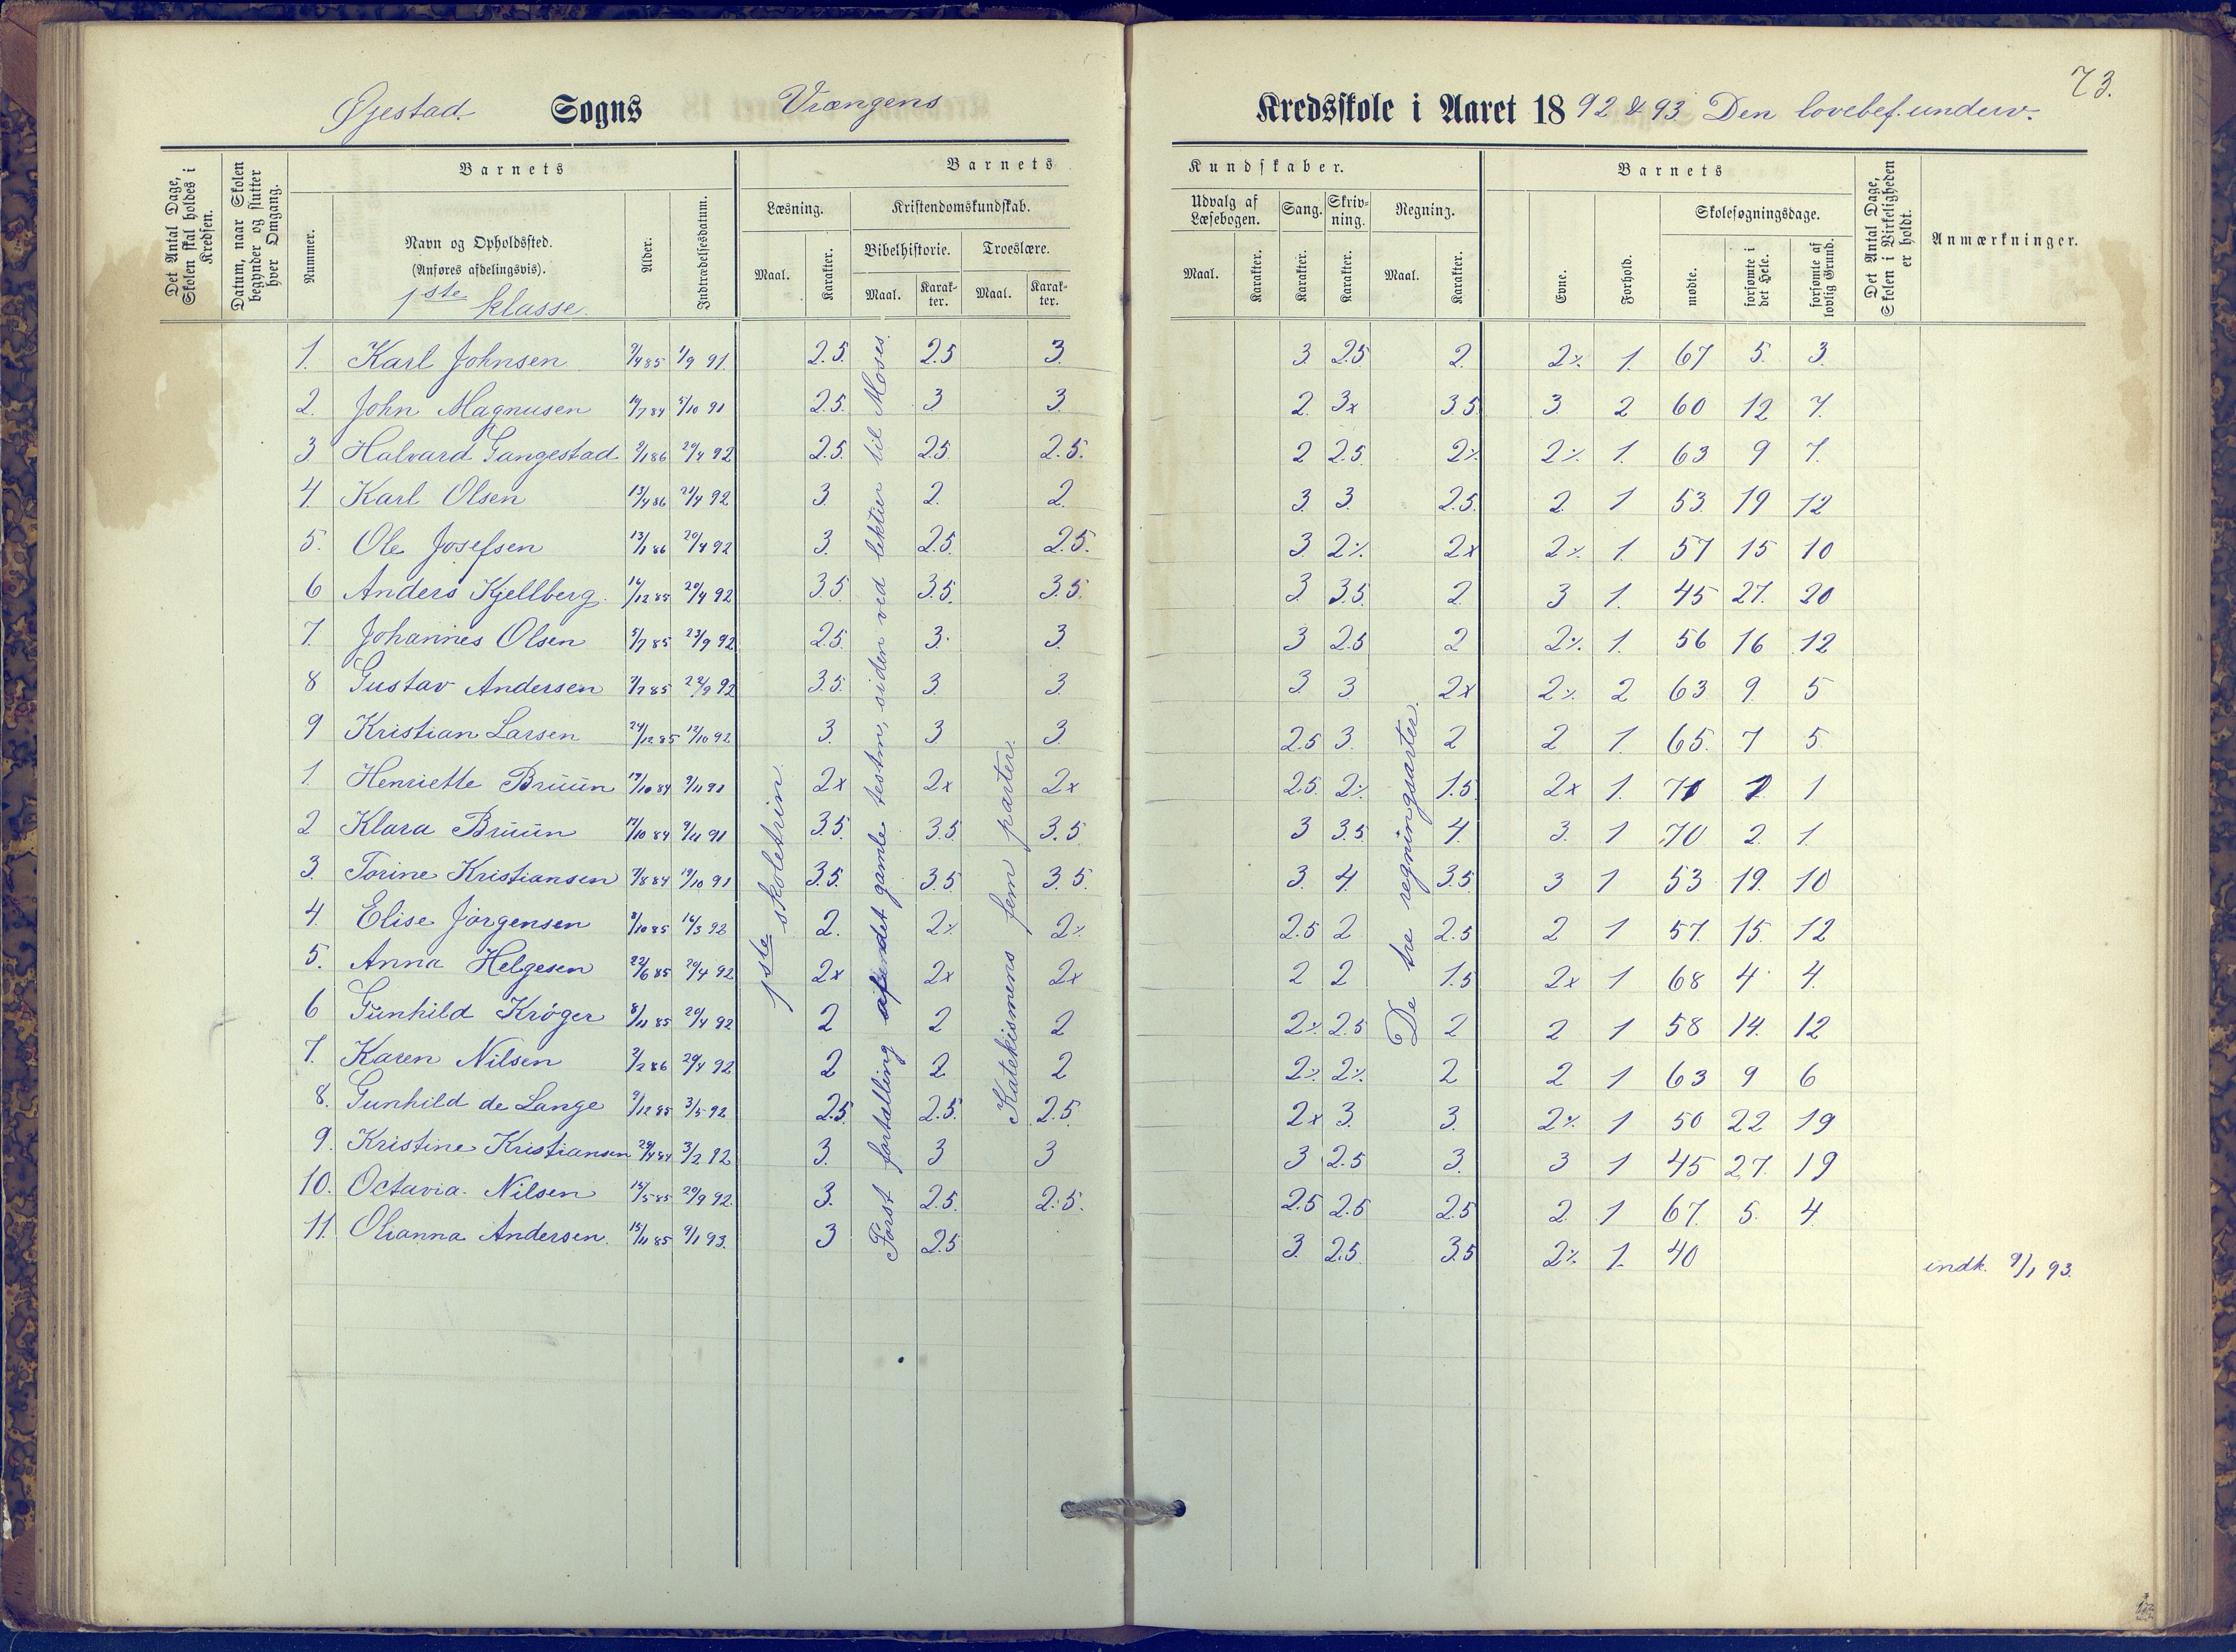 73.
Øjestad. Sogns Vrængens Kredsskole i Aaret 18 92 & 93 Den lovebef. underv.
Det Antal Dage, Skolen skal holdes i Kredsen.
Datum, naar Skolen begynder og slutter hver Omgang.
Barnets
Nummer.
Navn og Opholdssted.
(Anføres afdelingsvis).
1ste klasse.
Alder.
Indtrædelsesdatum.
Barnets Kundskaber.
Læsning.
Maal. Karakter.
Kristendomskundskab.
Bibelhistorie. Troeslære.
Maal. Karakter. Maal. Karakter.
Udvalg af Læsebogen.
Maal. Karakter.
Sang.
Karakter.
Skrivning.
Karakter.
Regning.
Maal. Karakter.
Barnets
Evne. Forhold.
Skolesøgningsdage.
mødte. forsømte i det Hele. forsømte af lovlig Grund.
Det Antal Dage, Skolen i Virkeligheden er holdt.
Anmærkninger.
1ste skoletrin.
Først fortælling af det gamle testm, siden ved lektier til Moses.
Katekismens fem parter.
De tre regningsarter.
1. Karl Johnsen 9/4 85 1/9 91. 2.5. 2.5 3. 3. 2.5 2. 2% 1. 67 5. 3.
2. John Magnusen 19/7 84 5/10 91 2.5. 3 3. 2. 3x 3.5 3. 2 60 12 7.
3 Halvard Gangestad 9/1 86 20/4 92 2.5. 2.5. 2.5. 2 2.5. 2% 2% 1. 63 9 7.
4. Karl Olsen 13/4 86 21/4 92 3. 2. 2. 3. 3. 2.5. 2. 1 53. 19 12
5. Ole Josefsen 13/1 86 20/4 92 3. 2.5. 2.5. 3 2% 2x 2% 1. 57 15 10
6 Anders Kjellberg. 16/12 85 20/4 92 3.5 3.5. 3.5. 3. 3.5. 2. 3 1. 45 27. 20
7. Johannes Olsen 5/7 85 23/9 92 2.5. 3. 3. 3 2.5 2 2% 1. 56 16 12
8 Gustav Andersen 7/7 85 22/9 92 3.5. 3. 3. 3. 3 2x 2% 2 63 9. 5
9 Kristian Larsen 24/12 85 12/10 92 3. 3 3. 2.5 3. 2 2 1 65. 7 5.
1. Henriette Brüün 17/10 84 9/11 91 2x 2x 2x 2.5. 2% 1.5 2x 1. 71 1 1
2 Klara Brüün 17/10 84 9/11 91 3.5. 3.5 3.5 3 3.5 4. 3. 1 70 2. 1.
3. Torine Kristiansen 7/8 84 19/10 91 3.5. 3.5 3.5. 3. 4. 3.5. 3 1 53 19. 10
4. Elise Jörgensen 8/10 85 16/3 92 2. 2% 2% 2.5 2 2.5 2 1 57. 15. 12
5. Anna Helgesen 22/6 85 20/4 92 2x 2x 2x 2 2 1.5 2x 1 68 4 4.
6 Gunhild Kröger 8/11 85 20/4 92 2 2 2 2% 2.5 2 2 1 58 14. 12
7. Karen Nilsen 3/2 86 20/4 92 2 2 2 2% 2% 2 2 1 63 9 6
8. Gunhild de Lange 9/12 85 3/5 92 2.5 2.5. 2.5. 2x 3. 3. 2% 1 50 22 19
9. Kristine Kristiansen 29/4 84 3/2 92 3. 3 3 3 2.5 3. 3 1 45 27. 19
10. Octavia Nilsen 15/5 85 20/9 92. 3. 2.5. 2.5. 2.5 2.5 2.5 2. 1 67. 5. 4.
11. Olianna Andersen. 15/11 85 9/1 93. 3 2.5 3. 2.5. 3.5 2% 1. 40 indk. 9/1 93.